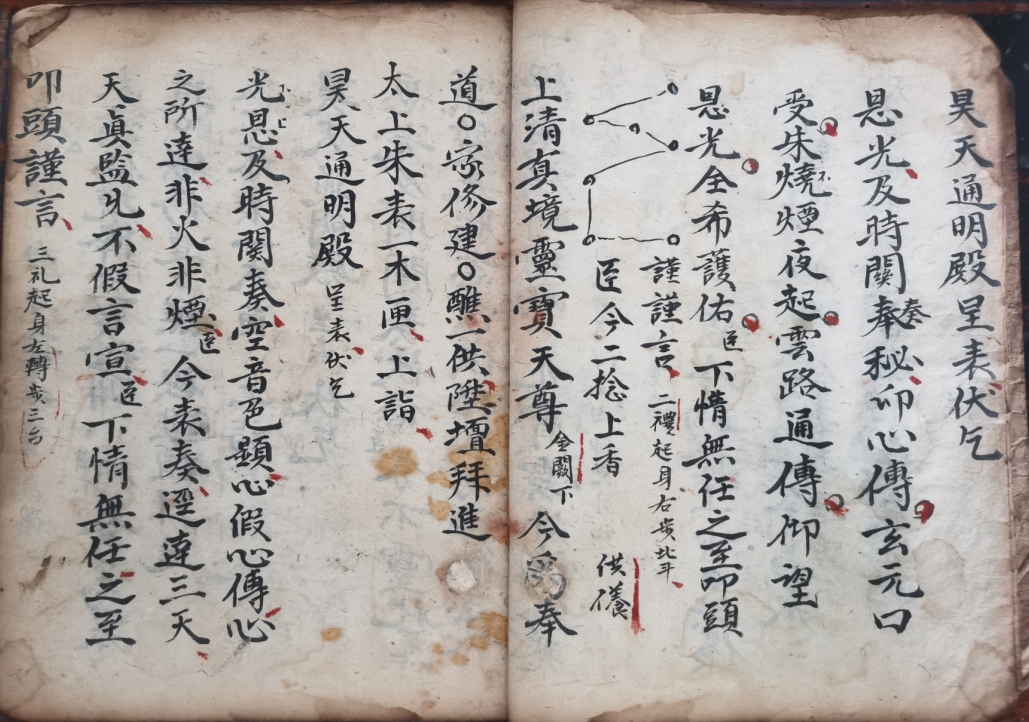 昊天通明殿呈表伏乞
恩光及時關奉奏秘叩心傳玄元口
受朱燒煙夜起雲路通傳仰望
恩光全希護佑臣下情無任之至叩頭
謹謹言二禮起身右步北斗
臣今二捻上香 供養
上清真境靈寶天尊金闕下今為奉
道〇家修建〇醮一供陞壇拜進
太上朱表一木匣上詣
昊天通明殿呈表伏乞
光恩及時関奏空音邑顕心假心傳心
之所達非火非煙臣今表奏逕達三天
天真監允不假言宣臣下情無任之至
叩頭謹言三礼起身左轉步三台